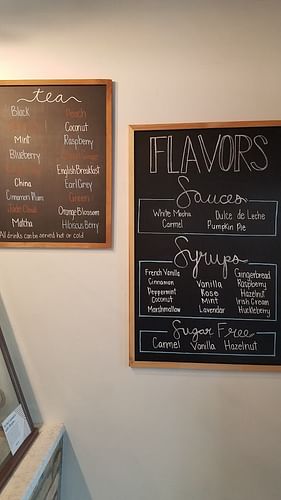 tea
Black Peach
Coconut
Mint Raspberry
Blueberry
English Breakfast
China Earl Grey
Cinnamon Plum Green
Orange Blossom
Matcha Hibiscus Berry
All drinks can be served hot or cold
FLAVORS
Sauces
White Mocha Dulce de Leche
Carmel Pumpkin Pie
Syrups
French Vanilla Gingerbread
Cinnamon Vanilla Raspberry
Peppermint Rose Hazelnut
Coconut Mint Irish Cream
Marshmallow Lavendar Huckleberry
Sugar Free
Carmel Vanilla Hazelnut